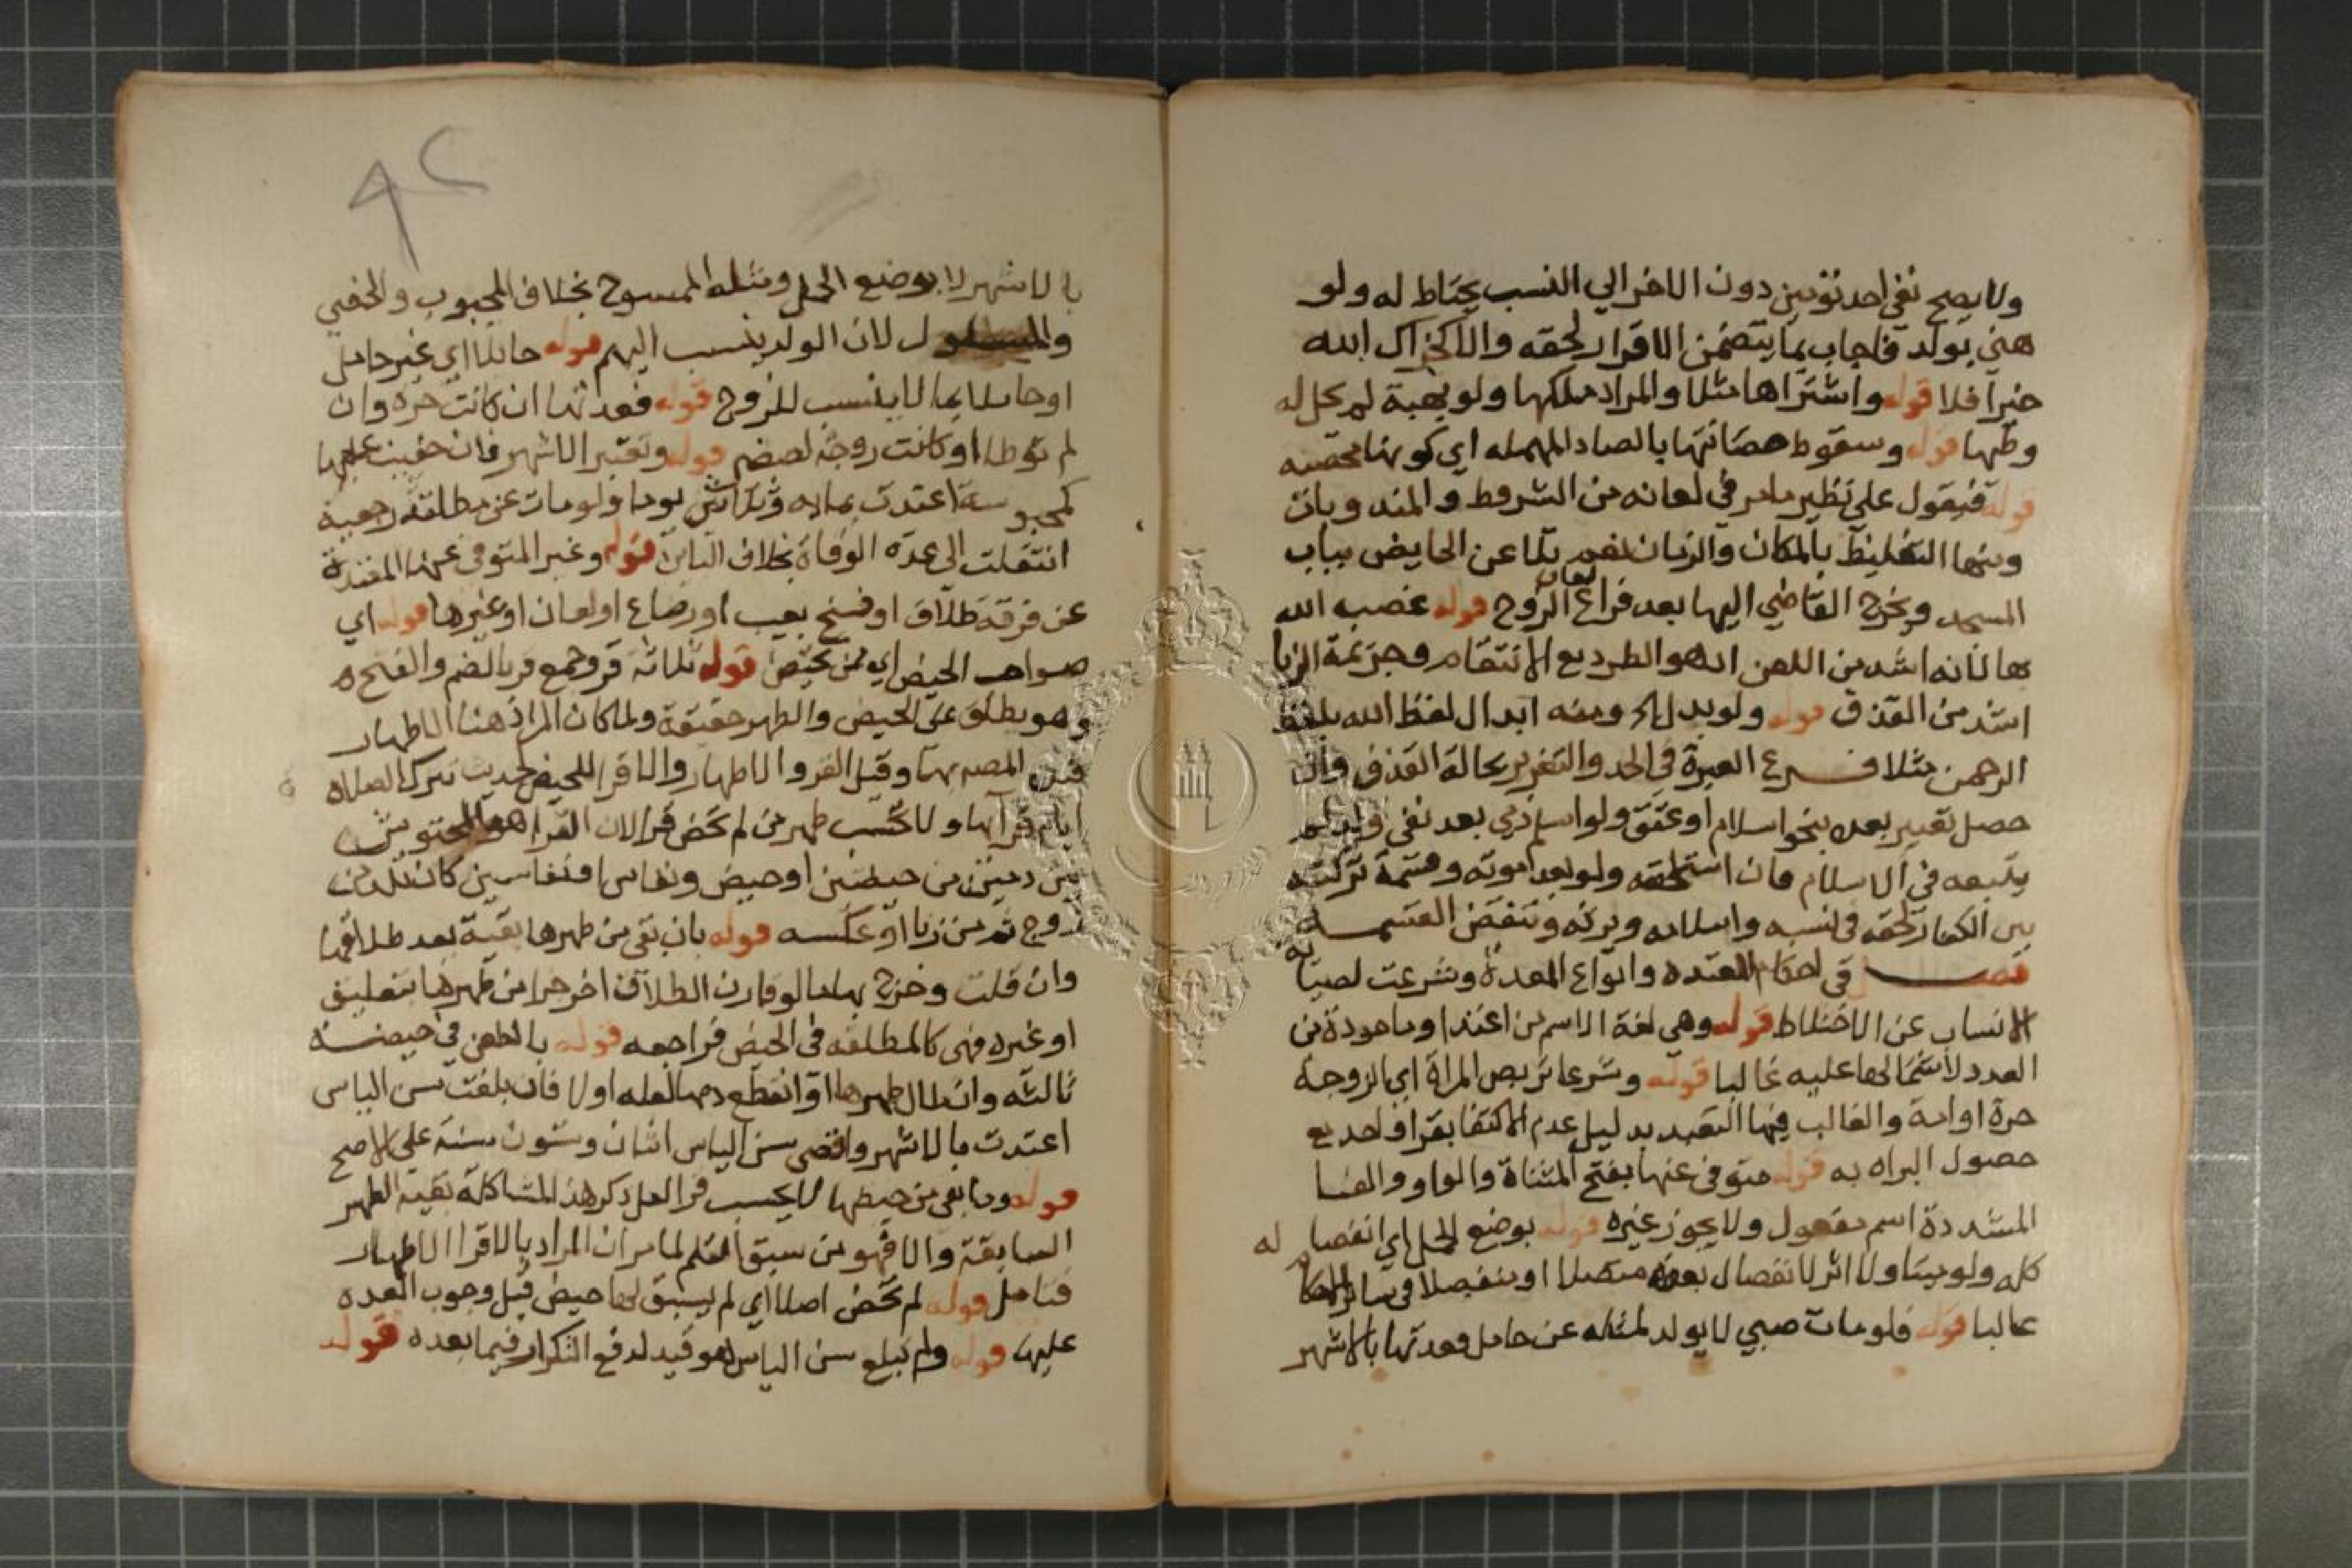 ولا يصح نفي احد توءمين دون الاخر الي النسب يحتاط له ولو
هني بولد فاجاب بما يتضمن الاقرار لحقه والا كجزاك الله
خيرا فلا قوله واشتراها مثلا والمراد ملكها ولو بهبة لم يحل له
وطيها قوله وسقوط حصانتها بالصاد المهمله اي كونها محصنه
قوله فيقول على نظير ما مر في لعانه من الشروط والمندوبات
ومنها التغليظ بالمكان والزمان نعم تلاعن الحايض بباب
المسجد ويخرج القاضي اليها بعد فراغ لعان الزوج قوله غضب الله
بها لانه اشد من اللعن اذ هو الطرد مع الانتقام وجريمة الزنا
اشد من القذف قوله ولو بدل الخ ومنه ابدال لفظ الله بلفظ
الرحمن مثلا فرع العبرة في الحد والتعزير بحالة القذف وان
حصل تغيير بعده بنحو اسلام او عتق ولو اسلم ذمي بعد نفي ولد لم
يتبعه في الاسلام فان استلحقه ولو بعد موته وقسمة تركته
بين الكفار لحقه في نسبه واسلامه ويرثه وتنقض القسمه
فصل في احكام العده وانواع العدة وشرعت لصيانة
الانساب عن الاختلاط قوله وهي لغة الاسم من اعتد او ماخوذة من
العدد لاشتمالها عليه غالبا قوله وشرعا تربص المراة اي الزوجة
حرة او امة والغالب فيها التعبد بدليل عدم الاكتفا بقرا واحد مع
حصول البراه به قوله متوفى عنها بفتح المثناة والواو والفا
المشددة اسم مفعول ولا يجوز غيره قوله بوضع الحمل اي انفصاله
كله ولو ميتا ولا اثر لانفصال بعضه متصلا او منفصلا في سائر الاحكام
غالبا قوله فلو مات صبي لا يولد لمثله عن حامل فعدتها بالاشهر
٩٢
بالاشهر لا بوضع الحمل ومثله الممسوح بخلاف المجبوب والخصي
والمسلول لان الولد ينسب اليهم قوله حائلا اي غير حامل
او حاملا بما لا ينسب للزوج قوله فعدتها ان كانت حره وان
لم توطا او كانت زوجة لصغير قوله وتعتبر الاشهر فان خفيت عليها
كمحبوسة اعتدت بمايه وثلاثين يوما ولو مات عن مطلقة رجعية
انتقلت الى عدة الوفاة بخلاف الباين قوله وغير المتوفى عنها المعتدة
عن فرقة طلاق او فسخ بعيب او رضاع او لعان او غيرها قوله اي
صواحب الحيض اي ممن تحيض قوله ثلاثة قروء جمع قرء بالضم والفتح
وهو يطلق على الحيض والطهر حقيقة ولما كان المراد هنا الاطهار
المصنف بها وقيل القروء الاطهار والاقرا للحيض لحديث تترك الصلاه
ايام اقرائها ولا تحسب طهر من لم تحض قرا لان القرا هو المحتوش
بين دمين من حيضتين او حيض ونفاس او نفاسين كان تلد من
زوج ثم من زنا او عكسه قوله بان بقي من طهرها بقية بعد طلاقها
وان قلت وخرج بها ما لو قارن الطلاق اخر جزا من طهرها بتعليق
او غيره فهي كالمطلقه في الحيض فراجعه قوله بالطعن في حيضة
ثالثه وان طال طهرها او انقطع دمها لعله اولا فان بلغت سن الياس
اعتدت بالاشهر واقصى سن الياس اثنان وستون سنة على الاصح
قوله وما بقي من حيضها لا يحسب قرا لعل ذكر هذا لمشاكلة بقية الطهر
السابقة والا فهو من سبق القلم لما مر ان المراد بالاقرا الاطهار
فتامل قوله لم تحض اصلا اي لم يسبق لها حيض قبل وجوب العده
عليها قوله ولم تبلغ سن الياس هو قيد لدفع التكرار فيما بعده قوله